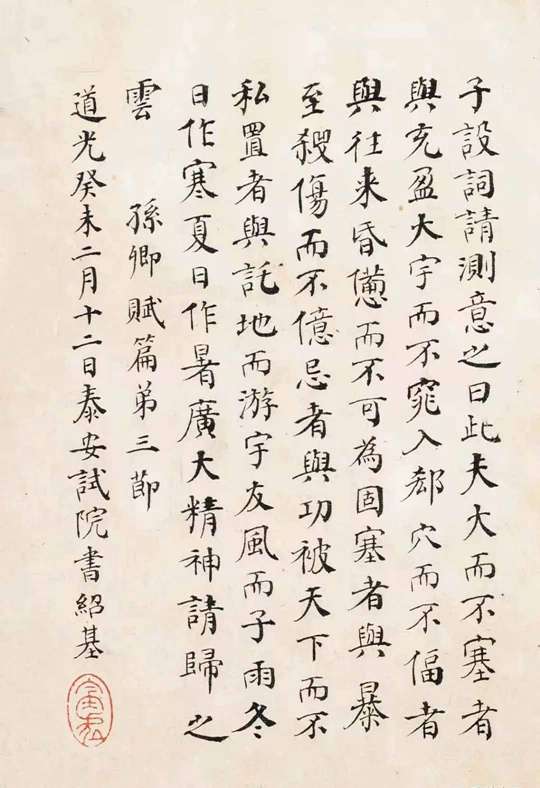 子設詞請測意之曰此夫大而不塞者
與充盈大宇而不窕入郄穴而不偪者
與往来昏憊而不可為固塞者與暴
至殺傷而不億忌者與功被天下而不
私置者與託地而游宇友風而子雨冬
日作寒夏日作暑廣大精神請歸之
雲　孫卿賦篇第三節
道光癸未二月十二日泰安試院書紹基